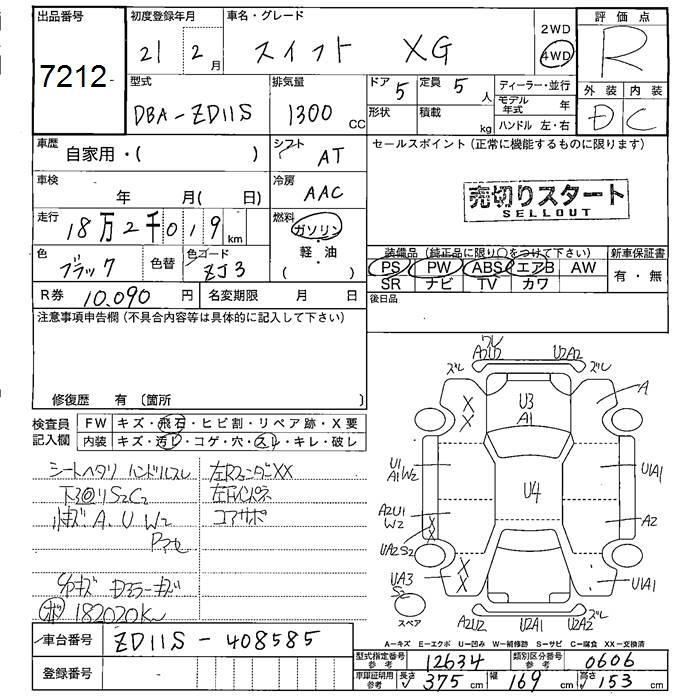 出品番号
7212
初度登録年月
21 2月
車名・グレード
スイフト XG
2WD
4WD
評価点
R
型式
DBA-ZD11S
排気量
1300 CC
ドア 5
定員 5人
形状
積載 kg
ディーラー・並行
モデル年式 年
ハンドル 左・右
外装 内装
D C
車歴
自家用・( )
シフト
AT
セールスポイント(正常に機能するものに限ります)
車検
年 月( 日)
冷房
AAC
売切りスタート
SELLOUT
走行
18万2千019km
燃料
ガソリン
軽・油
( )
色
ブラック
色替
色コード
ZJ3
装備品(純正品に限り○をつけて下さい)
PS PW ABS エアB AW
SR ナビ TV カワ
新車保証書
有・無
R券 10.090 円
名変期限 月 日
後日品
注意事項申告欄(不具合内容等は具体的に記入して下さい)
修復歴 有(箇所 )
検査員記入欄
FW キズ・飛石・ヒビ割・リペア跡・X要
内装 キズ・汚レ・コゲ・穴・スレ・キレ・破レ
シートヘタリ ハンドルスレ
左RフェンダーXX
S2C2
左Rインパネ
コアサポ
A.U W2
182020K
ズレ A2U2 U2A2 ズレ
A
U3
A1
U1
A1W2
U1A1
U4
A2U1
W2
A2
UA2S2
UA3
S2
U1A1
スペア
A2U2 U2A1 U2A2 ズレ
A-キズ E-エクボ U-凹み W-補修跡 S-サビ C-腐食 XX-交換済
車台番号
ZD11S-408585
登録番号
型式指定番号 参考
12634
類別区分番号 参考
0606
車庫証明用 参考
長さ 375cm
幅 169cm
高さ 153cm